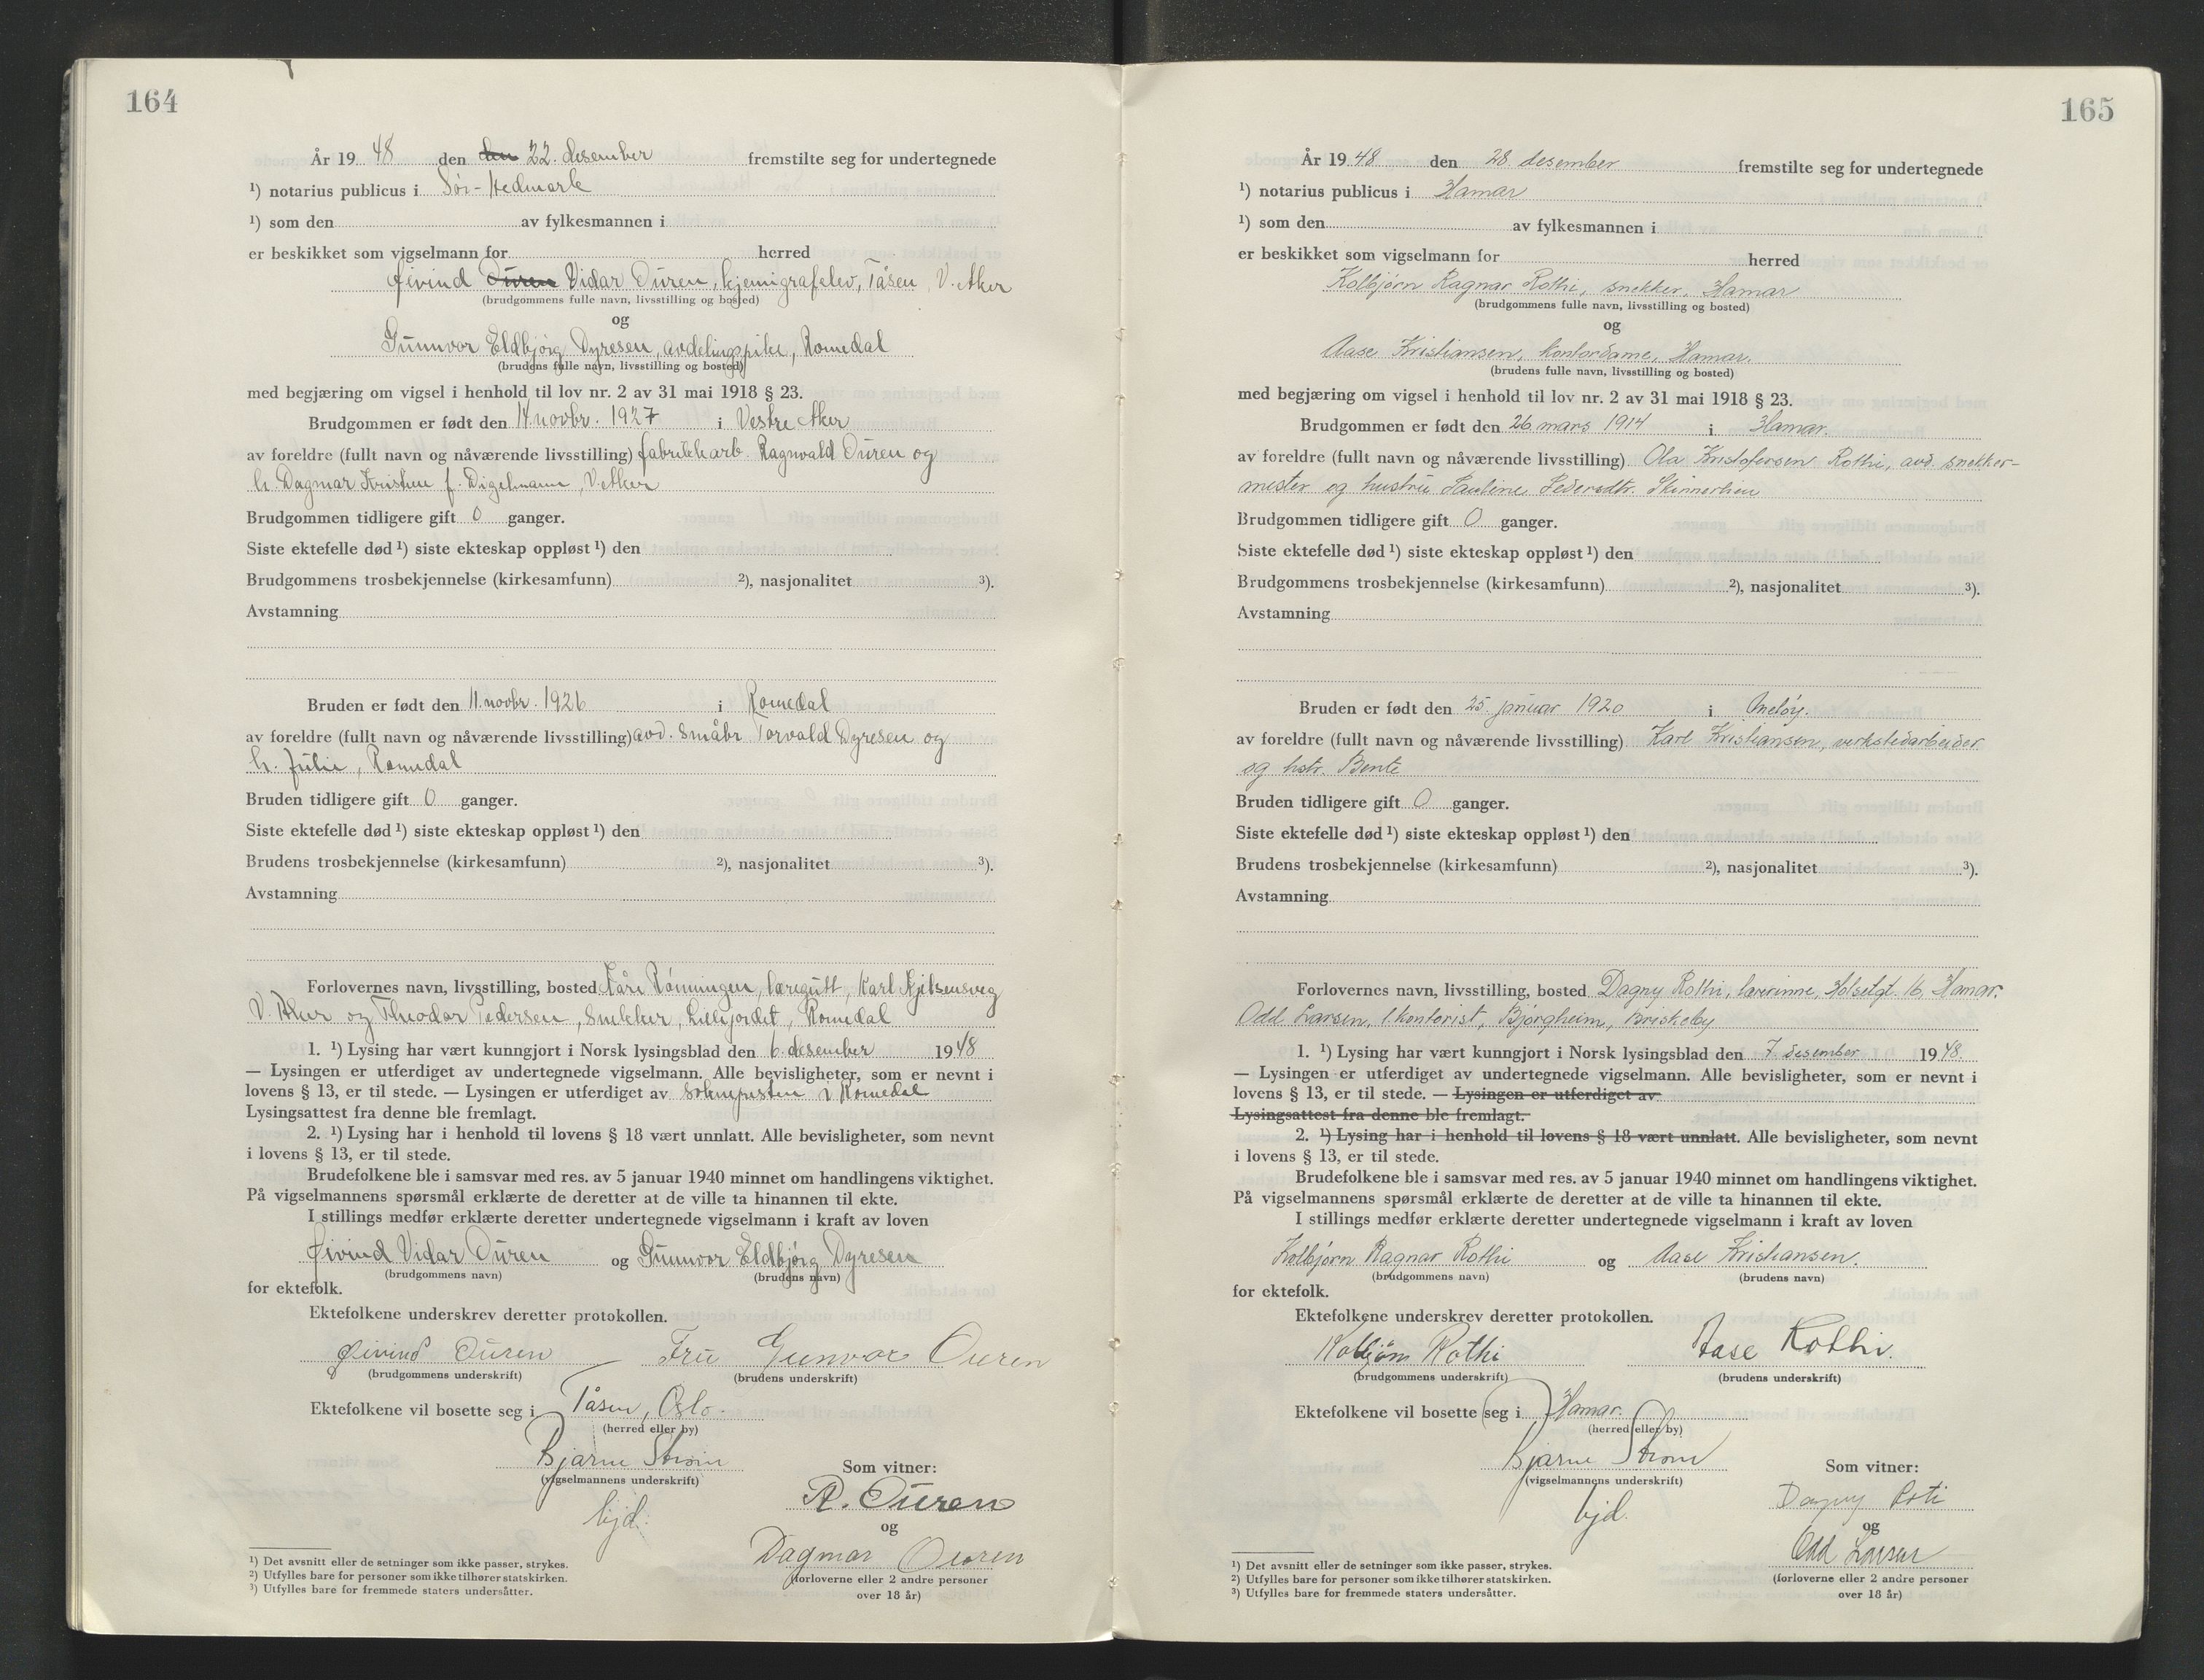 164
År 19 48 den den 22. desember fremstilte seg for undertegnede
¹) notarius publicus i Sør-Hedmark
¹) som den av fylkesmannen i
er beskikket som vigselmann for herred
Øivind Ouren Vidar Ouren, kjemigrafelev, Tåsen, V. Aker
(brudgommens fulle navn, livsstilling og bosted)
og
Gunnvor Eldbjørg Dyresen, avdelingspike, Romedal
(brudens fulle navn, livsstilling og bosted)
med begjæring om vigsel i henhold til lov nr. 2 av 31 mai 1918 § 23.
Brudgommen er født den 14 novbr. 1927 i Vestre Aker
av foreldre (fullt navn og nåværende livsstilling) fabrikkarb. Ragnvald Ouren og
h. Dagmar Kristine f. Digelmann, V. Aker
Brudgommen tidligere gift 0 ganger.
Siste ektefelle død ¹) siste ekteskap oppløst ¹) den
Brudgommens trosbekjennelse (kirkesamfunn) ²), nasjonalitet ³).
Avstamning
Bruden er født den 11. novbr. 1926 i Romedal
av foreldre (fullt navn og nåværende livsstilling) avd. småbr Torvald Dyresen og
h. Julie, Romedal
Bruden tidligere gift 0 ganger.
Siste ektefelle død ¹) siste ekteskap oppløst ¹) den
Brudens trosbekjennelse (kirkesamfunn) ²), nasjonalitet ³).
Avstamning
Forlovernes navn, livsstilling, bosted Kåre Rønningen, læregutt, Karl Kjelsensveg
V. Aker og Theodor Pedersen, snekker, Lillejordet, Romedal
1. ¹) Lysing har vært kunngjort i Norsk lysingsblad den 6. desember 19 48
— Lysingen er utferdiget av undertegnede vigselmann. Alle bevisligheter, som er nevnt i
lovens § 13, er til stede. — Lysingen er utferdiget av soknepresten i Romedal
Lysingsattest fra denne ble fremlagt.
2. ¹) Lysing har i henhold til lovens § 18 vært unnlatt. Alle bevisligheter, som nevnt
i lovens § 13, er til stede.
Brudefolkene ble i samsvar med res. av 5 januar 1940 minnet om handlingens viktighet.
På vigselmannens spørsmål erklærte de deretter at de ville ta hinannen til ekte.
I stillings medfør erklærte deretter undertegnede vigselmann i kraft av loven
Øivind Vidar Ouren og Gunnvor Eldbjørg Dyresen
(brudgommens navn) (brudens navn)
for ektefolk.
Ektefolkene underskrev deretter protokollen.
Øivind Ouren Fru Gunvor Ouren
(brudgommens underskrift) (brudens underskrift)
Ektefolkene vil bosette seg i Tåsen, Oslo.
(herred eller by)
Bjarne Strøm
(vigselmannens underskrift)
bjd.
Som vitner:
R. Ouren
og
Dagmar Ouren
(forloverne eller 2 andre personer
over 18 år)
¹) Det avsnitt eller de setninger som ikke passer, strykes.
²) Utfylles bare for personer som ikke tilhører statskirken.
³) Utfylles bare for fremmede staters undersåtter.
165
År 19 48 den 28. desember fremstilte seg for undertegnede
¹) notarius publicus i Hamar
¹) som den av fylkesmannen i
er beskikket som vigselmann for herred
Kolbjørn Ragnar Rothi, snekker, Hamar
(brudgommens fulle navn, livsstilling og bosted)
og
Aase Kristiansen, kontordame, Hamar.
(brudens fulle navn, livsstilling og bosted)
med begjæring om vigsel i henhold til lov nr. 2 av 31 mai 1918 § 23.
Brudgommen er født den 26 mars 1914 i Hamar.
av foreldre (fullt navn og nåværende livsstilling) Ola Kristofersen Rothi, avd. snekker-
mester og hustru Pauline Pedersdtr. Skinnerlien
Brudgommen tidligere gift 0 ganger.
Siste ektefelle død ¹) siste ekteskap oppløst ¹) den
Brudgommens trosbekjennelse (kirkesamfunn) ²), nasjonalitet ³).
Avstamning
Bruden er født den 25. januar 1920 i Meløy.
av foreldre (fullt navn og nåværende livsstilling) Karl Kristiansen, verkstedarbeider
og hstr. Bente
Bruden tidligere gift 0 ganger.
Siste ektefelle død ¹) siste ekteskap oppløst ¹) den
Brudens trosbekjennelse (kirkesamfunn) ²), nasjonalitet ³).
Avstamning
Forlovernes navn, livsstilling, bosted Dagny Rothi, lærerinne, Holsetgt. 16, Hamar.
Odd Larsen, l. kontorist, Bjørgheim, Briskeby
1. ¹) Lysing har vært kunngjort i Norsk lysingsblad den 7. desember 19 48.
— Lysingen er utferdiget av undertegnede vigselmann. Alle bevisligheter, som er nevnt i
lovens § 13, er til stede. — Lysingen er utferdiget av
Lysingsattest fra denne ble fremlagt.
2. ¹) Lysing har i henhold til lovens § 18 vært unnlatt. Alle bevisligheter, som nevnt
i lovens § 13, er til stede.
Brudefolkene ble i samsvar med res. av 5 januar 1940 minnet om handlingens viktighet.
På vigselmannens spørsmål erklærte de deretter at de ville ta hinannen til ekte.
I stillings medfør erklærte deretter undertegnede vigselmann i kraft av loven
Kolbjørn Ragnar Rothi og Aase Kristiansen.
(brudgommens navn) (brudens navn)
for ektefolk.
Ektefolkene underskrev deretter protokollen.
Kolbjørn Rothi Aase Rothi.
(brudgommens underskrift) (brudens underskrift)
Ektefolkene vil bosette seg i Hamar.
(herred eller by)
Bjarne Strøm
(vigselmannens underskrift)
bjd.
Som vitner:
Dagny Roti
og
Odd Larsen
(forloverne eller 2 andre personer
over 18 år)
¹) Det avsnitt eller de setninger som ikke passer, strykes.
²) Utfylles bare for personer som ikke tilhører statskirken.
³) Utfylles bare for fremmede staters undersåtter.